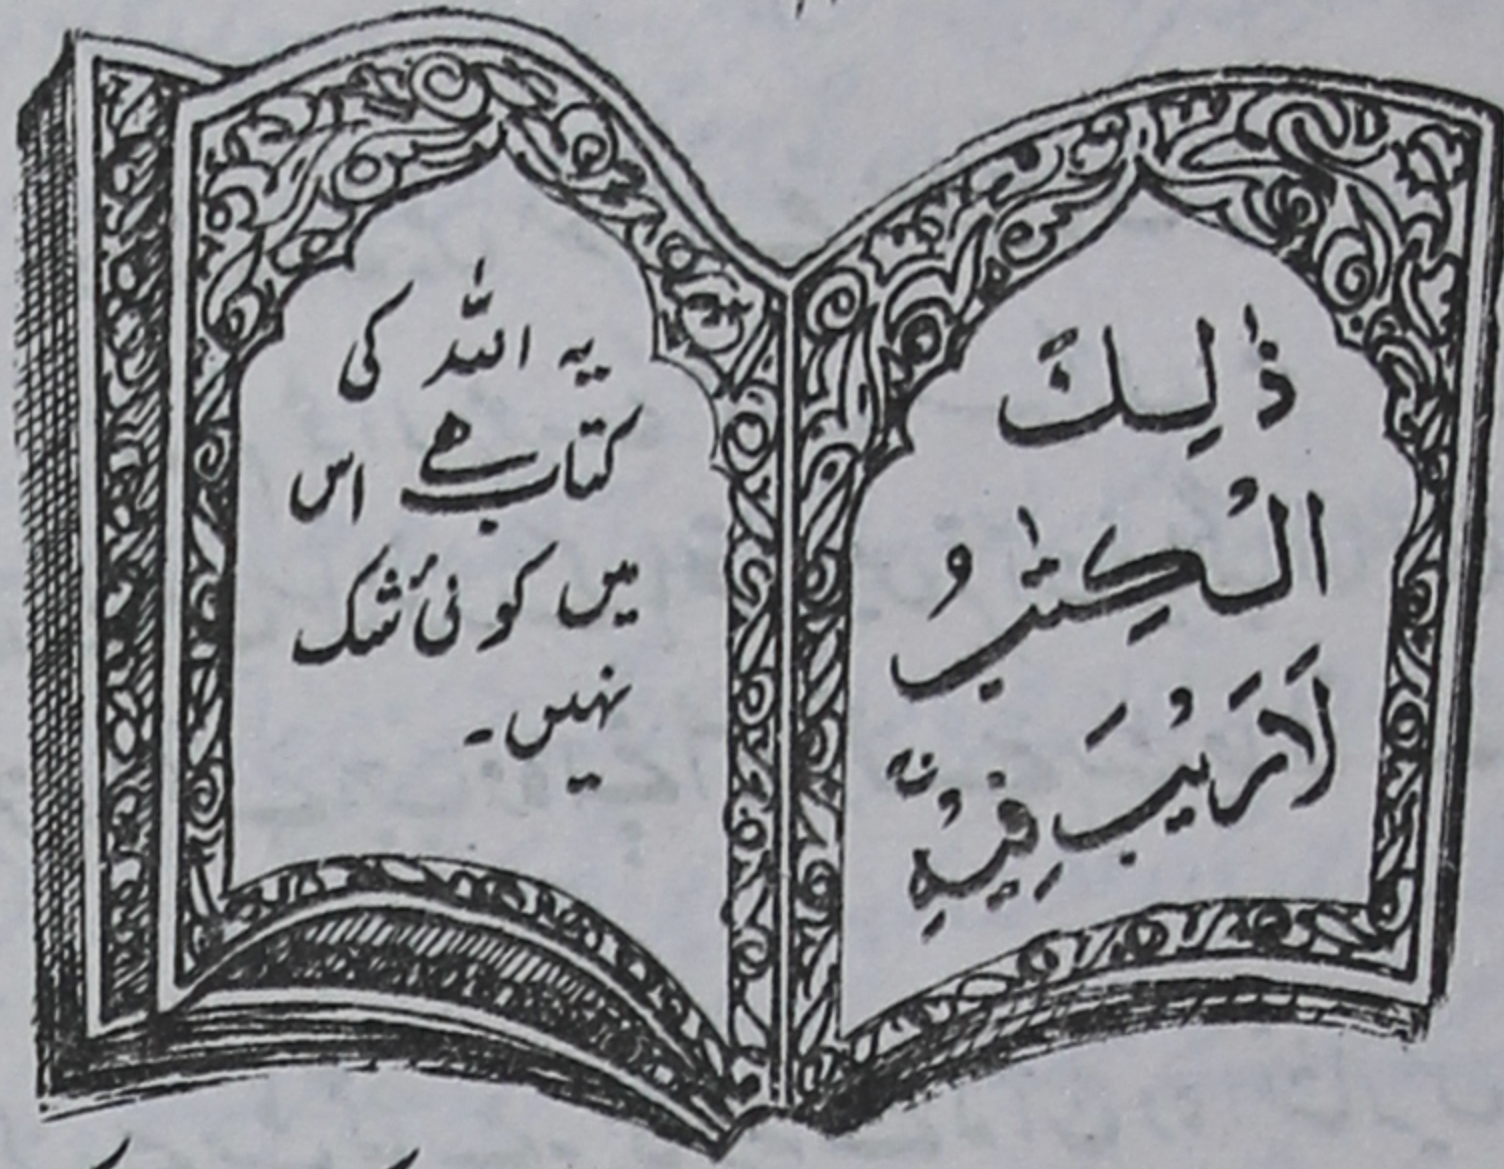 ذٰلِكَ
الْكِتٰبُ
لَا رَيْبَ فِيْهِ
یہ اللّٰہ کی
کتاب ہے اس
میں کوئی شک
نہیں۔